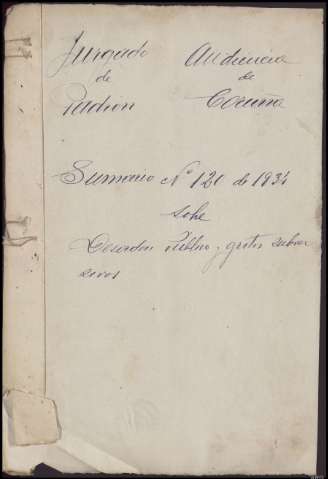 Juzgado Audiencia
de de
Padron Coruña
Sumario Nº 120 de 1934
sobre
Desorden Público y gritos subver
sivos